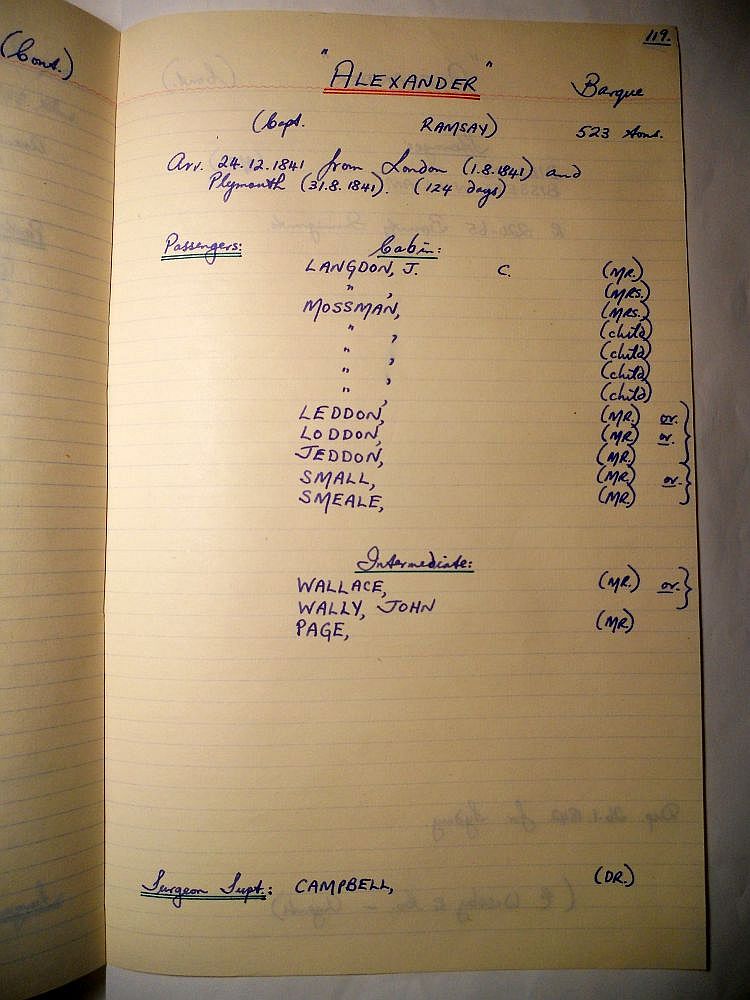 (Cont.)
119.
"ALEXANDER" Barque
(Capt. RAMSAY) 523 tons.
Arr. 24.12.1841 from London (1.8.1841) and
Plymouth (31.8.1841). (124 days)
Passengers: Cabin:
LANGDON, J. C. (MR.)
" , (MRS.)
MOSSMAN, (MRS.)
" , (child)
" , (child)
" , (child)
" , (child)
LEDDON, (MR.) or.
LODDON, (MR.) or.
JEDDON, (MR.)
SMALL, (MR.) or.
SMEALE, (MR.)
Intermediate:
WALLACE, (MR.) or.
WALLY, JOHN
PAGE, (MR.)
Surgeon Supt.: CAMPBELL, (DR.)